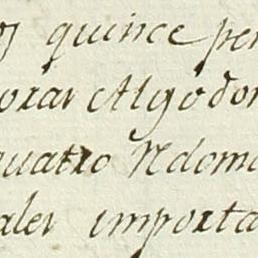 quince per
orar Algodon
quatro Ndoma
ales importa